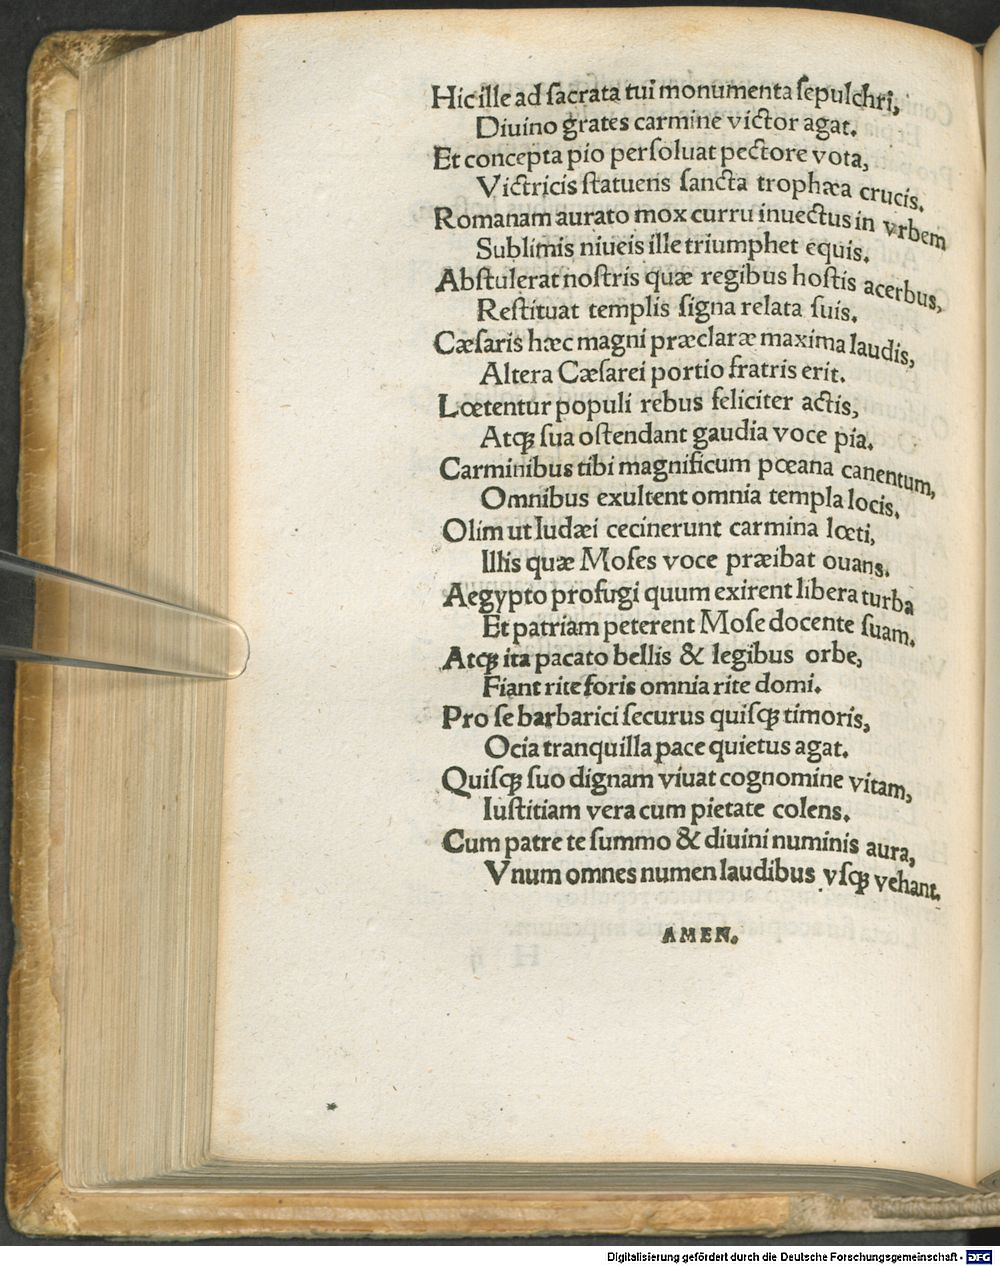 Hic ille ad ſacrata tui monumenta ſepulchri,
Diuino grates carmine victor agat.
Et concepta pio perſoluat pectore vota,
Victricis ſtatuens ſancta trophæa crucis.
Romanam aurato mox curru inuectus in vrbem
Sublimis niueis ille triumphet equis.
Abſtulerat noſtris quæ regibus hoſtis acerbus,
Reſtituat templis ſigna relata ſuis.
Cæſaris hæc magni præclaræ maxima laudis,
Altera Cæſarei portio fratris erit.
Lœtentur populi rebus feliciter actis,
Atqꝫ ſua oſtendant gaudia voce pia.
Carminibus tibi magnificum pœana canentum,
Omnibus exultent omnia templa locis.
Olim ut Iudæi cecinerunt carmina lœti,
Illis quæ Moſes voce præibat ouans.
Aegypto profugi quum exirent libera turba
Et patriam peterent Moſe docente ſuam.
Atqꝫ ita pacato bellis & legibus orbe,
Fiant rite foris omnia rite domi.
Pro ſe barbarici ſecurus quiſqꝫ timoris,
Ocia tranquilla pace quietus agat.
Quiſqꝫ ſuo dignam viuat cognomine vitam,
Iuſtitiam vera cum pietate colens.
Cum patre te ſummo & diuini numinis aura,
Vnum omnes numen laudibus vſqꝫ vehant.
AMEN.
Digitalisierung gefördert durch die Deutsche Forschungsgemeinschaft - DFG